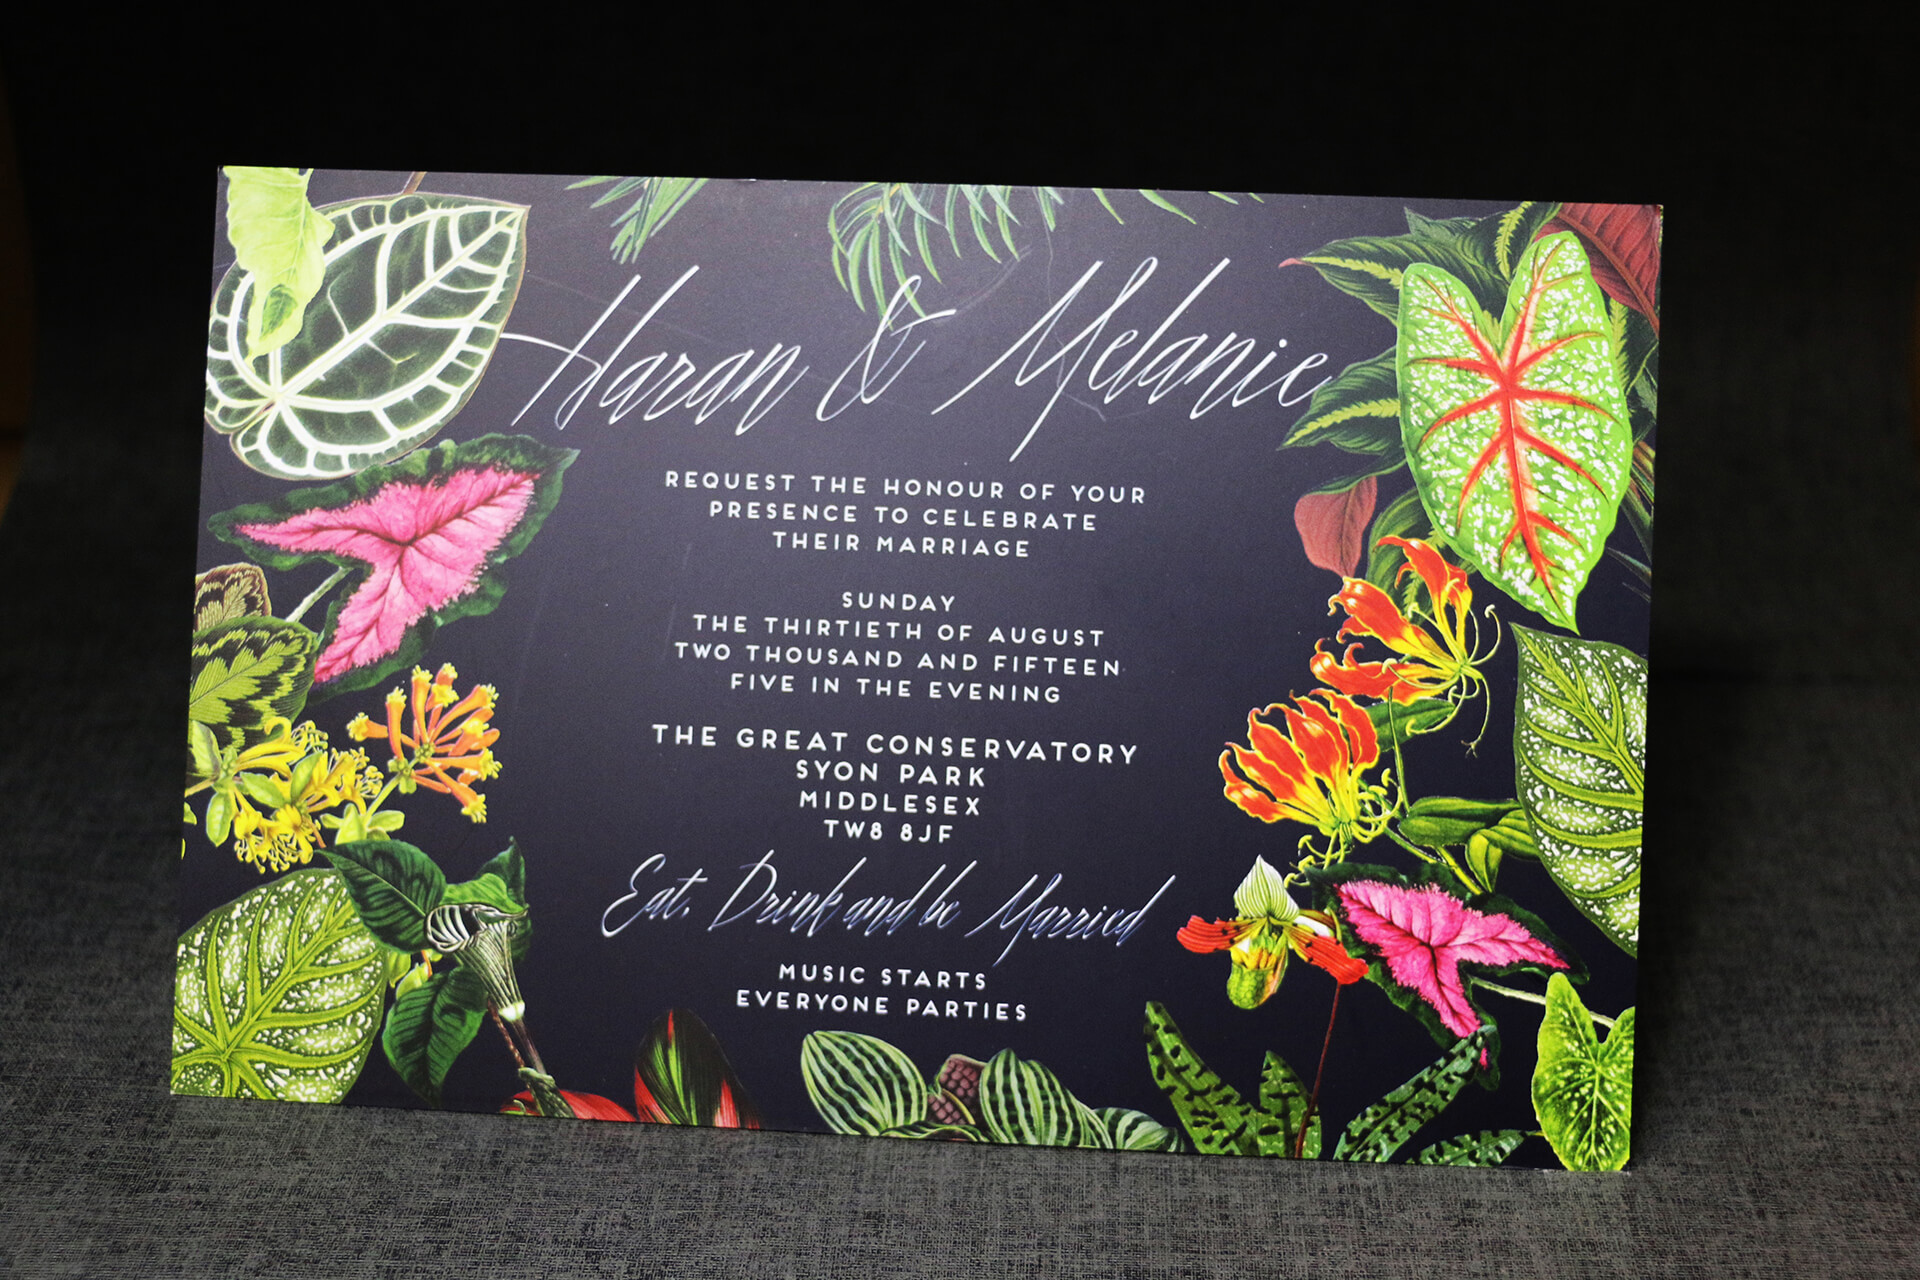 Haran & Melanie
REQUEST THE HONOUR OF YOUR
PRESENCE TO CELEBRATE
THEIR MARRIAGE
SUNDAY
THE THIRTIETH OF AUGUST
TWO THOUSAND AND FIFTEEN
FIVE IN THE EVENING
THE GREAT CONSERVATORY
SYON PARK
MIDDLESEX
TW8 8JF
Eat, Drink and be Married
MUSIC STARTS
EVERYONE PARTIES